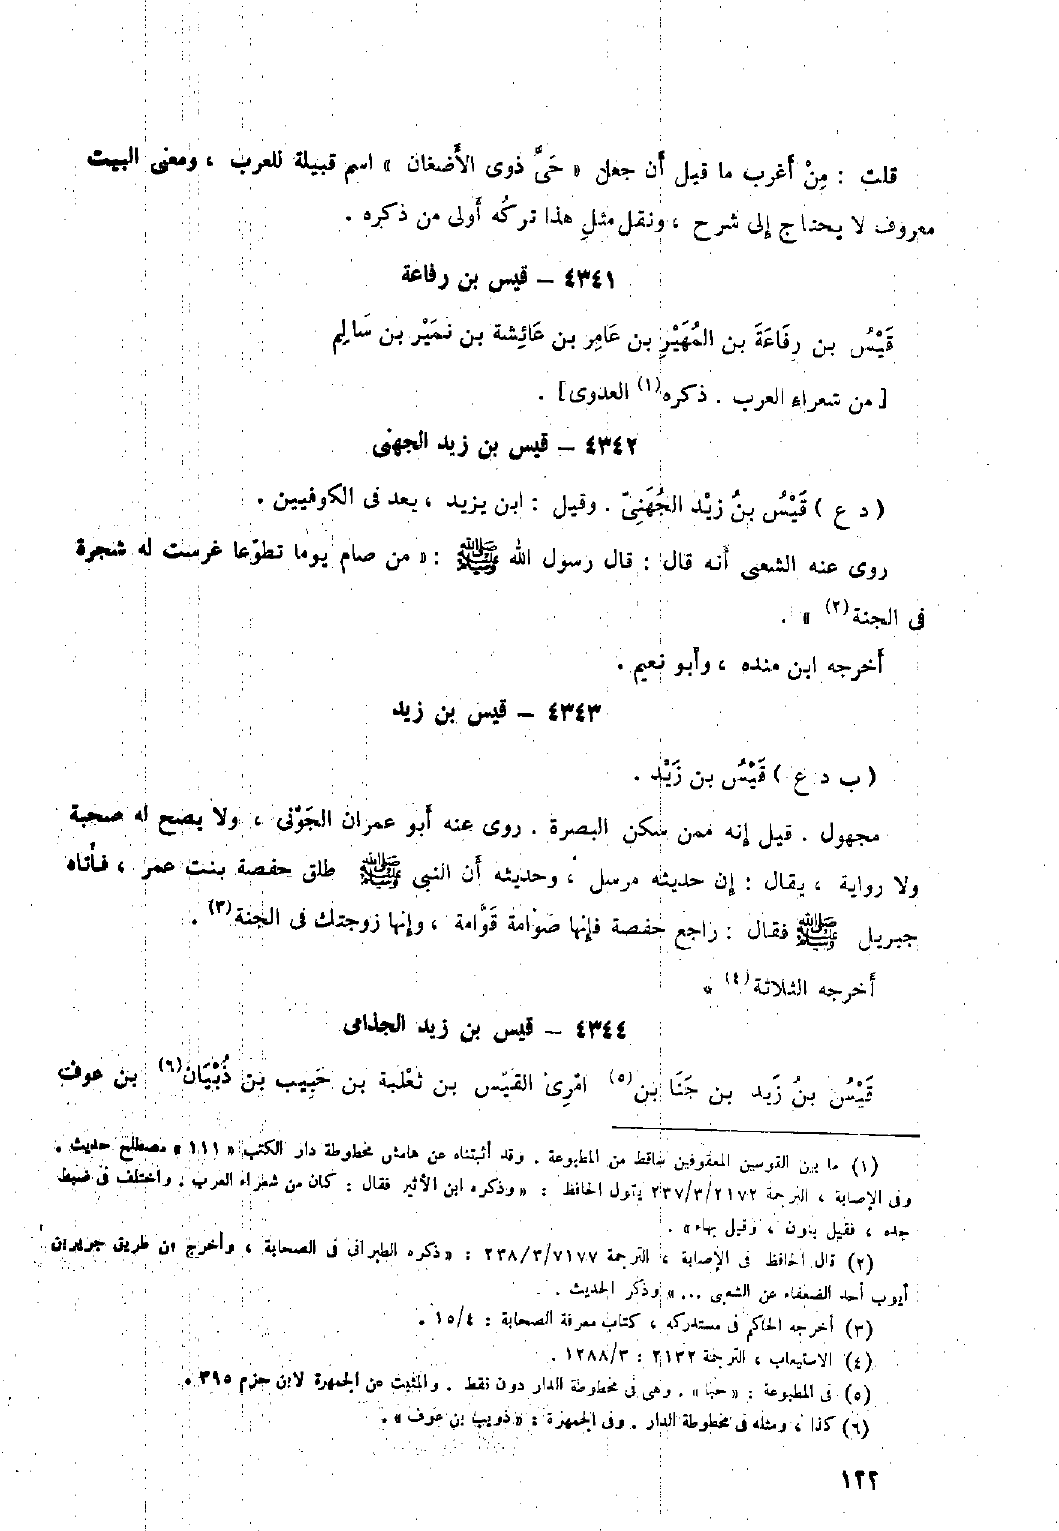 قلت : مِنْ أَغرب ما قيل أَن جعل « حَىَّ ذوى الأَضغان » اسم قبيلة للعرب ، ومعنى البيت
معروف لا يحتاج إِلى شرح ، ونقل مثلِ هذا تركُه أَولى من ذكره .
٤٣٤١ – قيس بن رفاعة
قَيْسُ بن رِفَاعَةَ بن المُهَيْرِ بن عَامِر بن عَائِشة بن نمَيْر بن سَالِم
[ من شعراء العرب . ذكره(١) العدوى] .
٤٣٤٢ – قيس بن زيد الجهنى
( د ع ) قَيْسُ بنُ زيْد الجُهَنِىّ . وقيل : ابن يزيد ، يعد فى الكوفيين .
روى عنه الشعبى أَنه قال : قال رسول الله ﷺ : « من صام يوما تطوّعا غرست له شجرة
فى الجنة(٢) » .
أَخرجه ابن منده ، وأَبو نعيم .
٤٣٤٣ – قيس بن زيد
( ب د ع ) قَيْسُ بن زَيْد .
مجهول . قيل إِنه ممن سكن البصرة . روى عنه أَبو عمران الجَوْنى ، ولا يصح له صحبة
ولا رواية ، يقال : إِن حديثه مرسل ، وحديثه أَن النبى ﷺ طلق حفصة بنت عمر ، فأَتاه
جبريل ﷺ فقال : راجع حفصة فإِنها صَوَّامة قَوَّامة ، وإِنها زوجتك فى الجنة(٣) .
أَخرجه الثلاثة(٤) *
٤٣٤٤ – قيس بن زيد الجذامى
قَيْسُ بنُ زَيد بن جَنَا بن(٥) امْرِئ القَيْس بن ثعْلبة بن حَبِيب بن ذُبْيَان(٦) بن عوف
(١) ما بين القوسين المعقوفين ساقط من المطبوعة . وقد أثبتناه عن هامش مخطوطة دار الكتب « ١١١ » مصطلح حديث .
وفى الإصابة ، الترجمة ٢٣٧/٣/٢١٧٢ يقول الحافظ : « وذكره ابن الأثير فقال : كان من شعراء العرب . واختلف فى ضبط
جده ، فقيل بنون ، وقيل بهاء» .
(٢) قال الحافظ فى الإصابة ، الترجمة ٢٣٨/٣/٧١٧٧ : «ذكره الطبرانى فى الصحابة ، وأخرج من طريق جرير بن
أيوب أحد الضعفاء عن الشعبى ... » وذكر الحديث .
(٣) أخرجه الحاكم فى مستدركه ، كتاب معرفة الصحابة : ١٥/٤ .
(٤) الاستيعاب ، الترجمة ٢١٣٢ : ١٢٨٨/٣ .
(٥) فى المطبوعة : « حبا » . وهى فى مخطوطة الدار دون نقط . والمثبت عن الجمهرة لابن حزم ٣٩٥ .
(٦) كذا ، ومثله فى مخطوطة الدار . وفى الجمهرة : « ذويب بن عوف » .
١٢٢